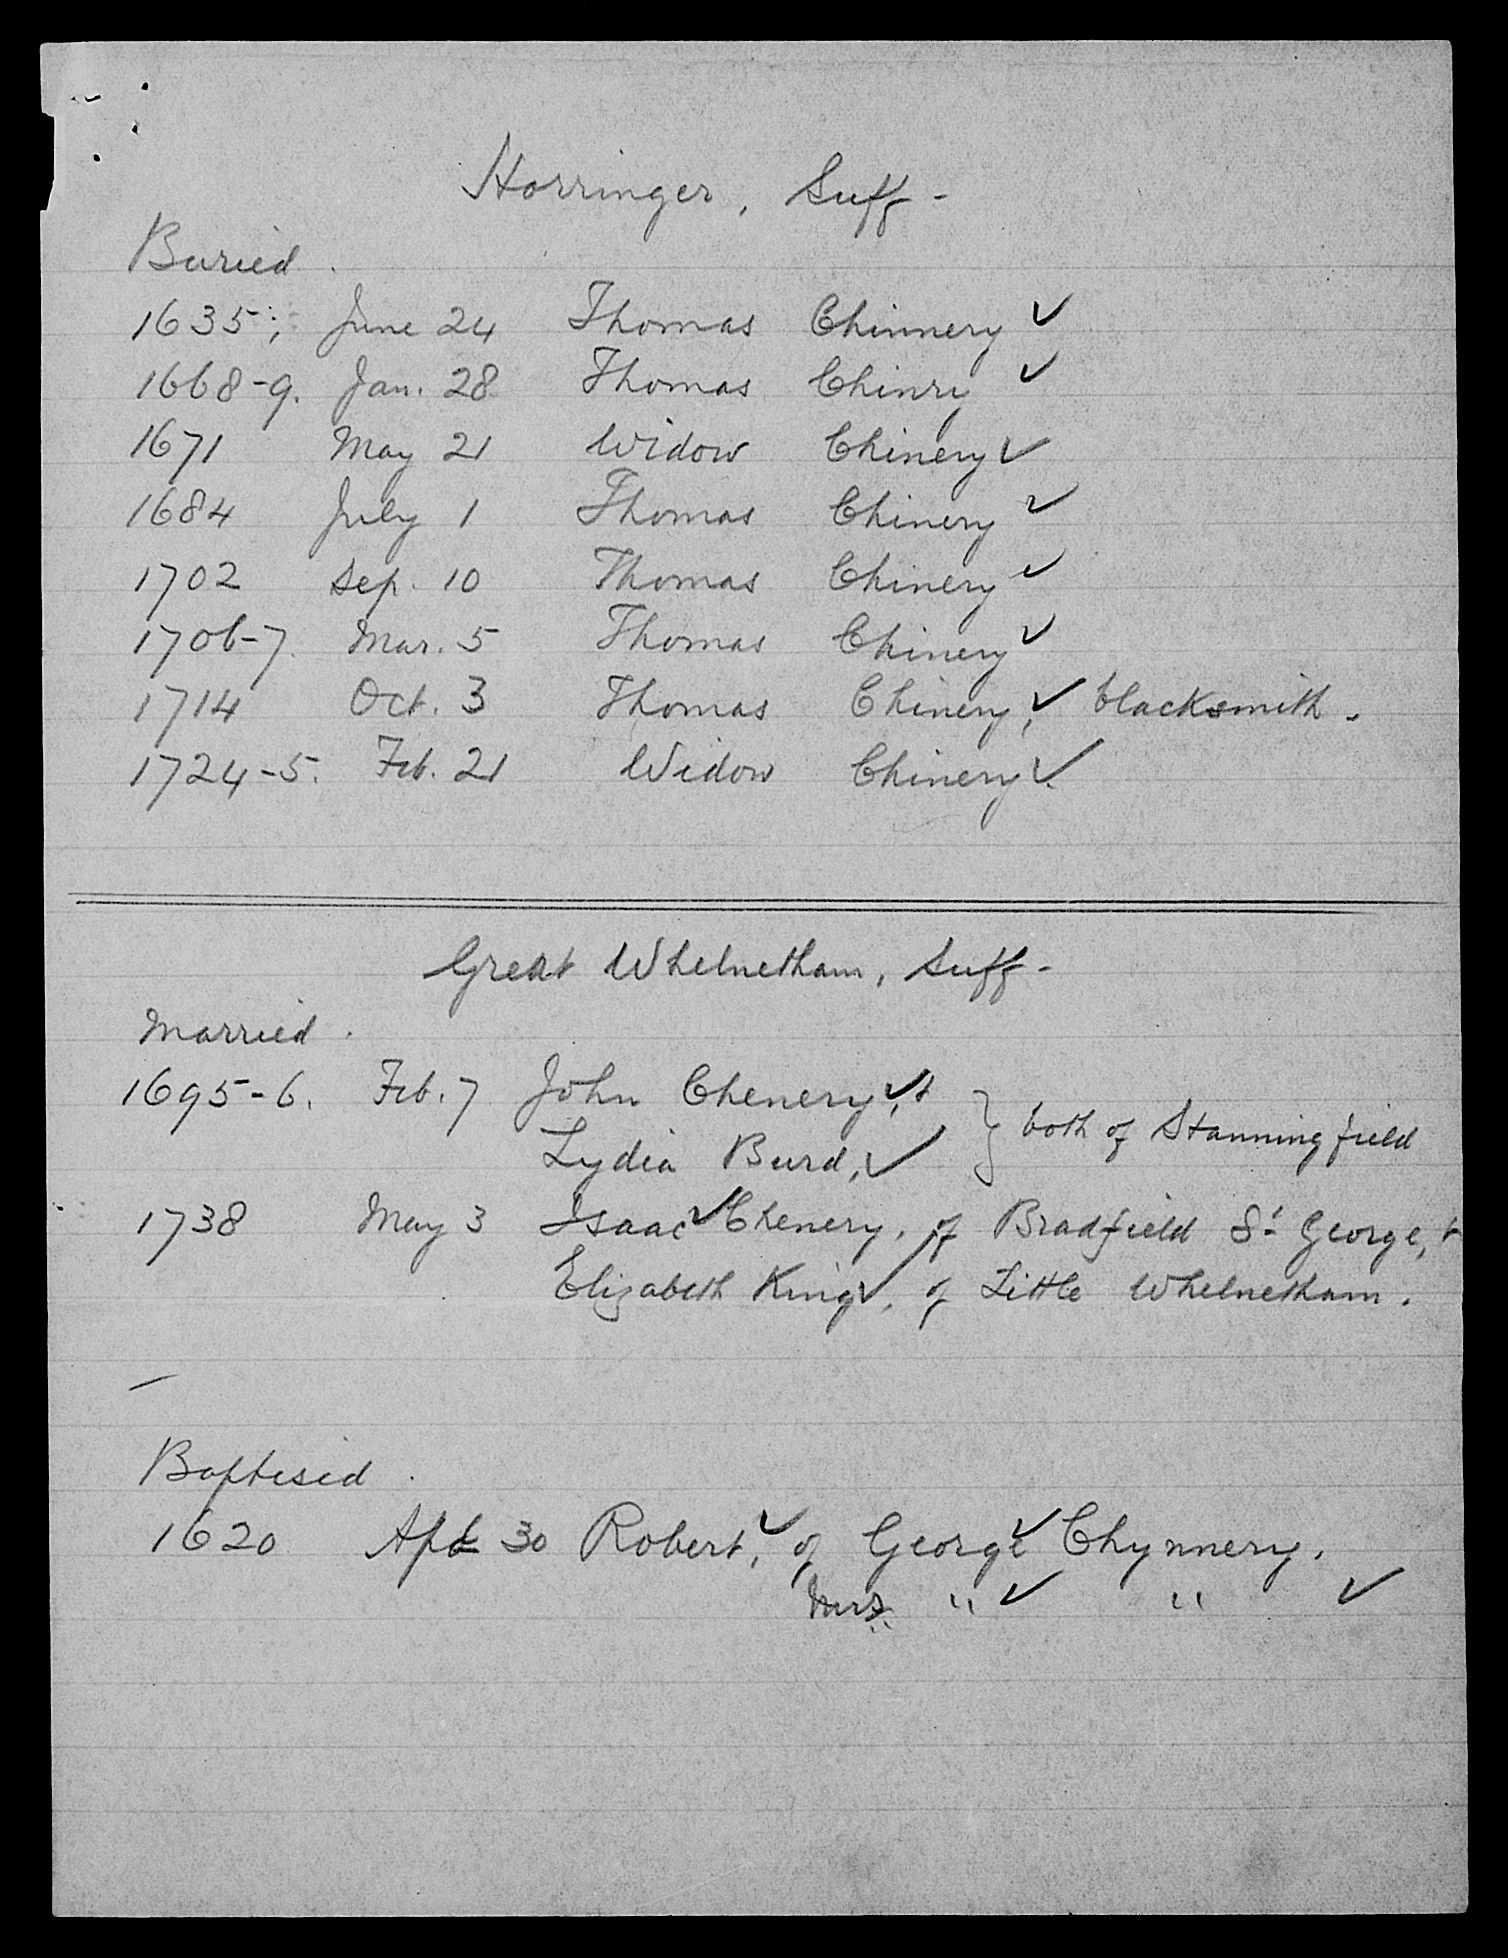 Horringer, Suff-
Buried.
1635; June 24 Thomas Chinnery ✓
1668-9. Jan. 28 Thomas Chinry ✓
1671 May 21 Widow Chinery ✓
1684 July 1 Thomas Chinery ✓
1702 Sep. 10 Thomas Chinery ✓
1706-7. Mar. 5 Thomas Chinery ✓
1714 Oct. 3 Thomas Chinery, ✓ blacksmith.
1724-5. Feb. 21 Widow Chinery ✓.
Great Whelnetham, Suff-
Married.
1695-6. Feb. 7 John Chenery, ✓ + } both of Stanningfield
Lydia Burd, ✓
1738 May 3 Isaac ✓ Chenery, of Bradfield St George, +
Elizabeth King ✓, of Little Whelnetham.
Baptised.
1620 Apl 30 Robert, ✓ of George ✓ Chynnery.
Mrs. " ✓ " ✓